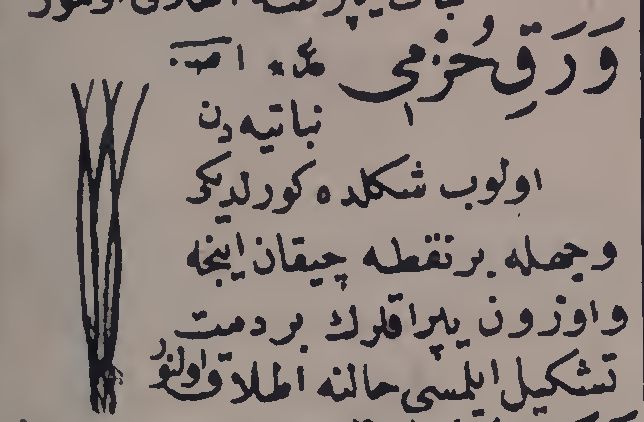 وَرَقِ حُزمِى
نباتیه دن
اولوب شکلده کورلدیکی
وجهله بر نقطه چیقان اینجه
واوزون یپراقلرك بر دمت
تشکیل ایلمسی حالنه اطلاق اولنور